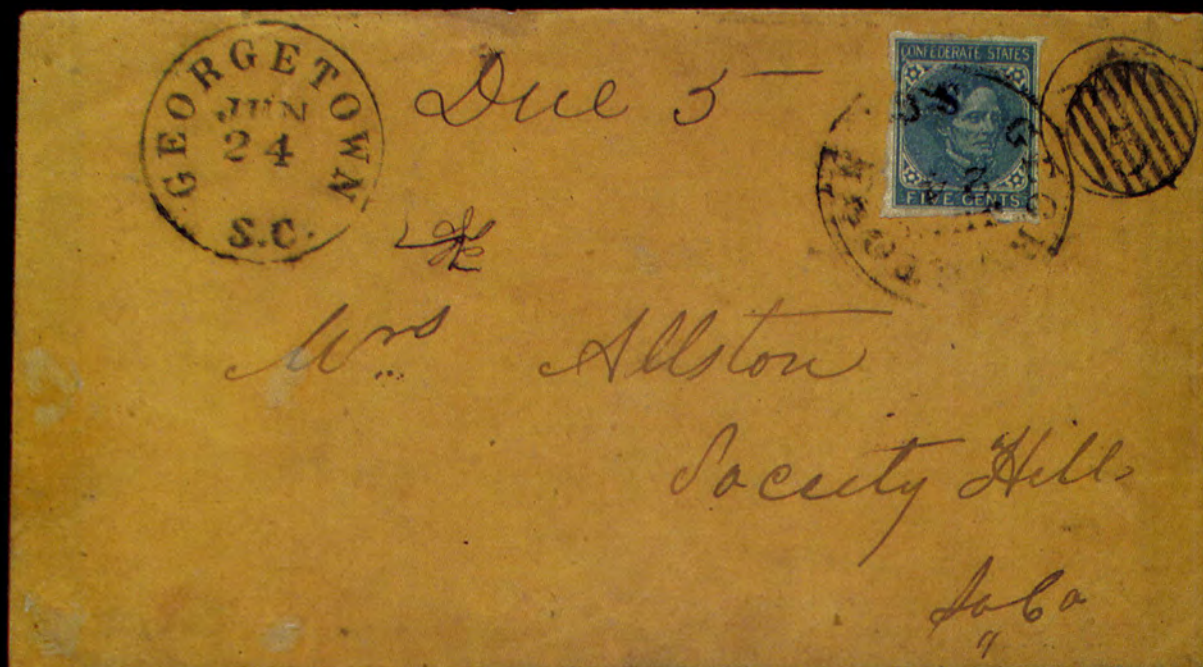 GEORGETOWN
JUN
24
S.C.
Due 5
CONFEDERATE STATES
FIVE CENTS
5
Mrs Allston
Society Hill
So Ca